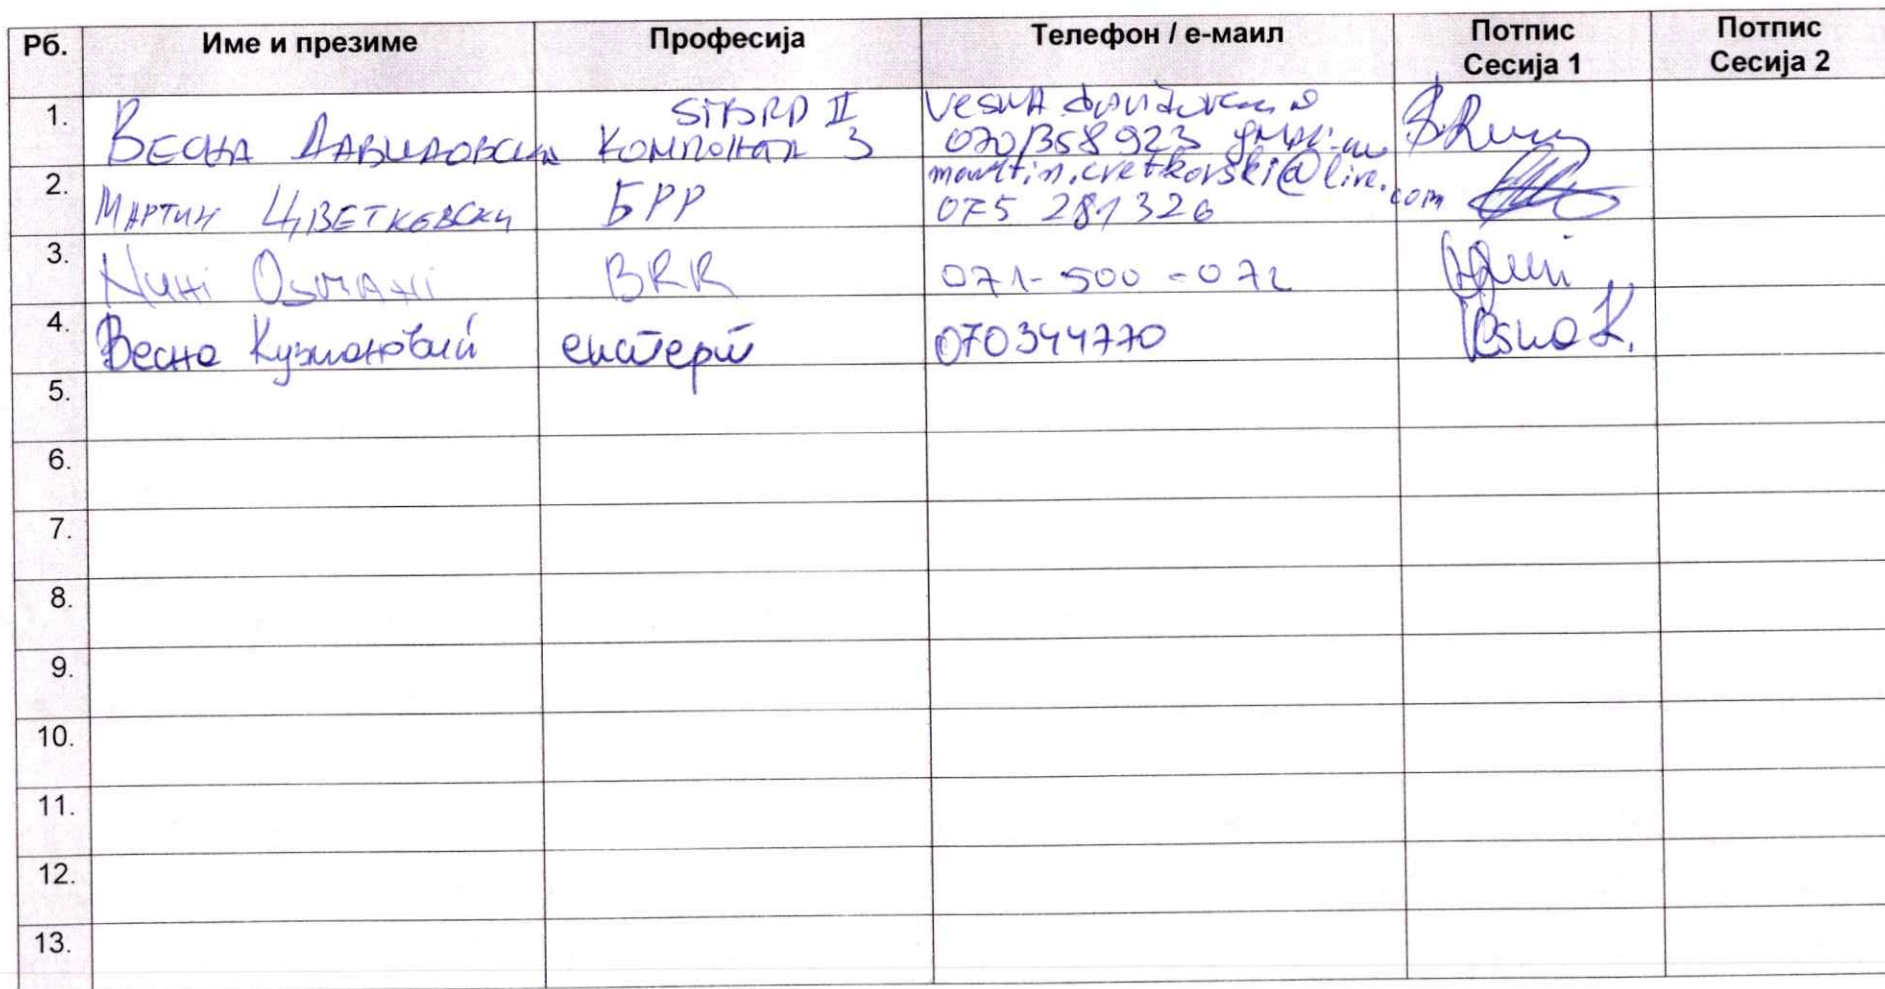 Рб. Име и презиме Професија Телефон / е-маил Потпис Сесија 1 Потпис Сесија 2
1. ВЕСНА ДАВИДОВСКА КОМПОНЕНТА 3 070/358 923
2. МАРТИН ЦВЕТКОВСКИ БРР martin.cvetkovski@live.com 075 281 326
3. Osmani BRR 071-500-072
4. Весна Кузмановић експерт 070344770 Vesna K.
5.
6.
7.
8.
9.
10.
11.
12.
13.